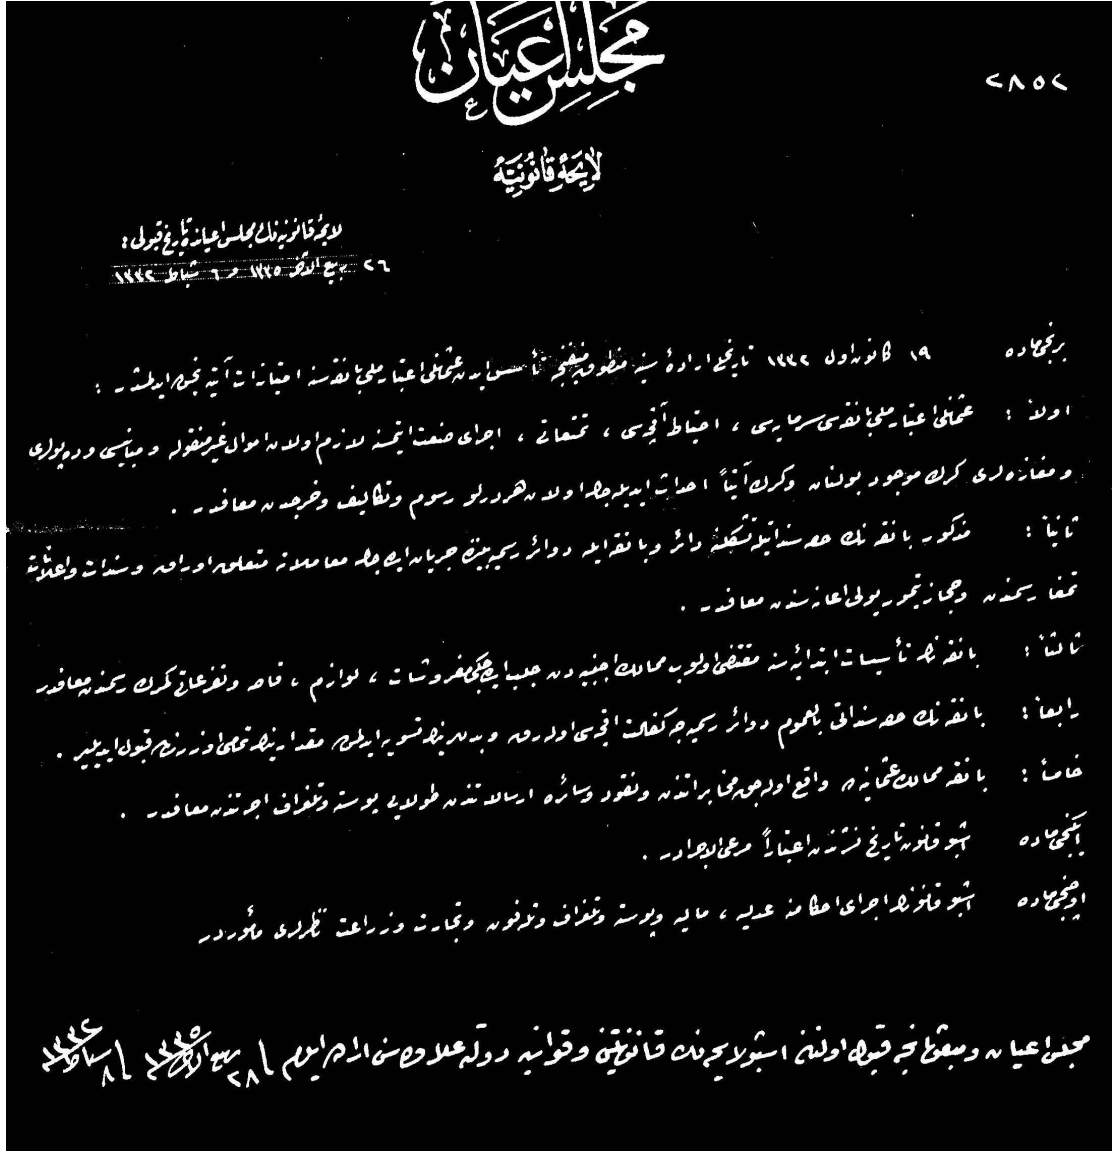 مجلس اعيان
٢٨٥٢
لايحۀ قانونيه
لايحۀ قانونيه نك مجلس اعيانده تاريخ قبولى :
٢٦ ربيع الآخر ١٣٣٥ و ٦ شباط ١٣٣٢
برنجى ماده ١٩ كانون اول ١٣٣٢ تاريخلى ارادۀ سنيه منطوق منيفنجه تأسس ايدن عثمانلى اعتبار ملى بانقه سنه امتيازات آتيه بخش ايدلمشدر :
اولاً : عثمانلى اعتبار ملى بانقه سى سرمايه سى ، احتياط آقچه سى ، تمتعاتى ، اجراى صنعت ايتمسنه لازم اولان اموال غير منقوله و مبانيسى و ده پولرى
و مغازه لرى كرك موجود بولنان و كرك آتياً احداث ايديله جك اولان هر درلو رسوم و تكاليف و خرجدن معافدر .
ثانياً : مذكور بانقه نك حصه سنداتيله تشكلنه دائر و بانقه ايله دوائر رسميه بيننده جريان ايده جك معاملاته متعلق اوراق و سندات و اعلانات
تمغا رسمندن و حجاز تيمور يولى اعانه سندن معافدر .
ثالثاً : بانقه نك تأسيسات ابتدائيه سنه مقتضى اولوب ممالك اجنبيه دن جلب ايده جكى مفروشات ، لوازم ، قاصه و تفرعاتى كمرك رسمندن معافدر
رابعاً : بانقه نك حصه سنداتى بالعموم دوائر رسميه جه كفالت اقچه سى اوله رق و بدللرينك تسويه ايدلمش مقدارينك تمامى اوزرندن قبول ايديلير .
خامساً : بانقه ممالك عثمانيه ده واقع اوله جق مخابراتندن و نقود و سائره ارسالاتندن طولايى پوسته و تلغراف اجرتندن معافدر .
ايكنجى ماده اشبو قانون تاريخ نشرندن اعتباراً مرعى الاجرادر .
اوچنجى ماده اشبو قانونك اجراى احكامنه عدليه ، ماليه و پوسته و تلغراف و تلفون و تجارت و زراعت ناظرلرى مأموردر
مجلس اعيان و مبعوثانجه قبول اولنان اشبو لايحه نك قانونيتنى و قوانين دولته علاوه سنى اراده ايلدم ٢٨ ربيع الآخر ١٣٣٥ ٨ شباط ١٣٣٢